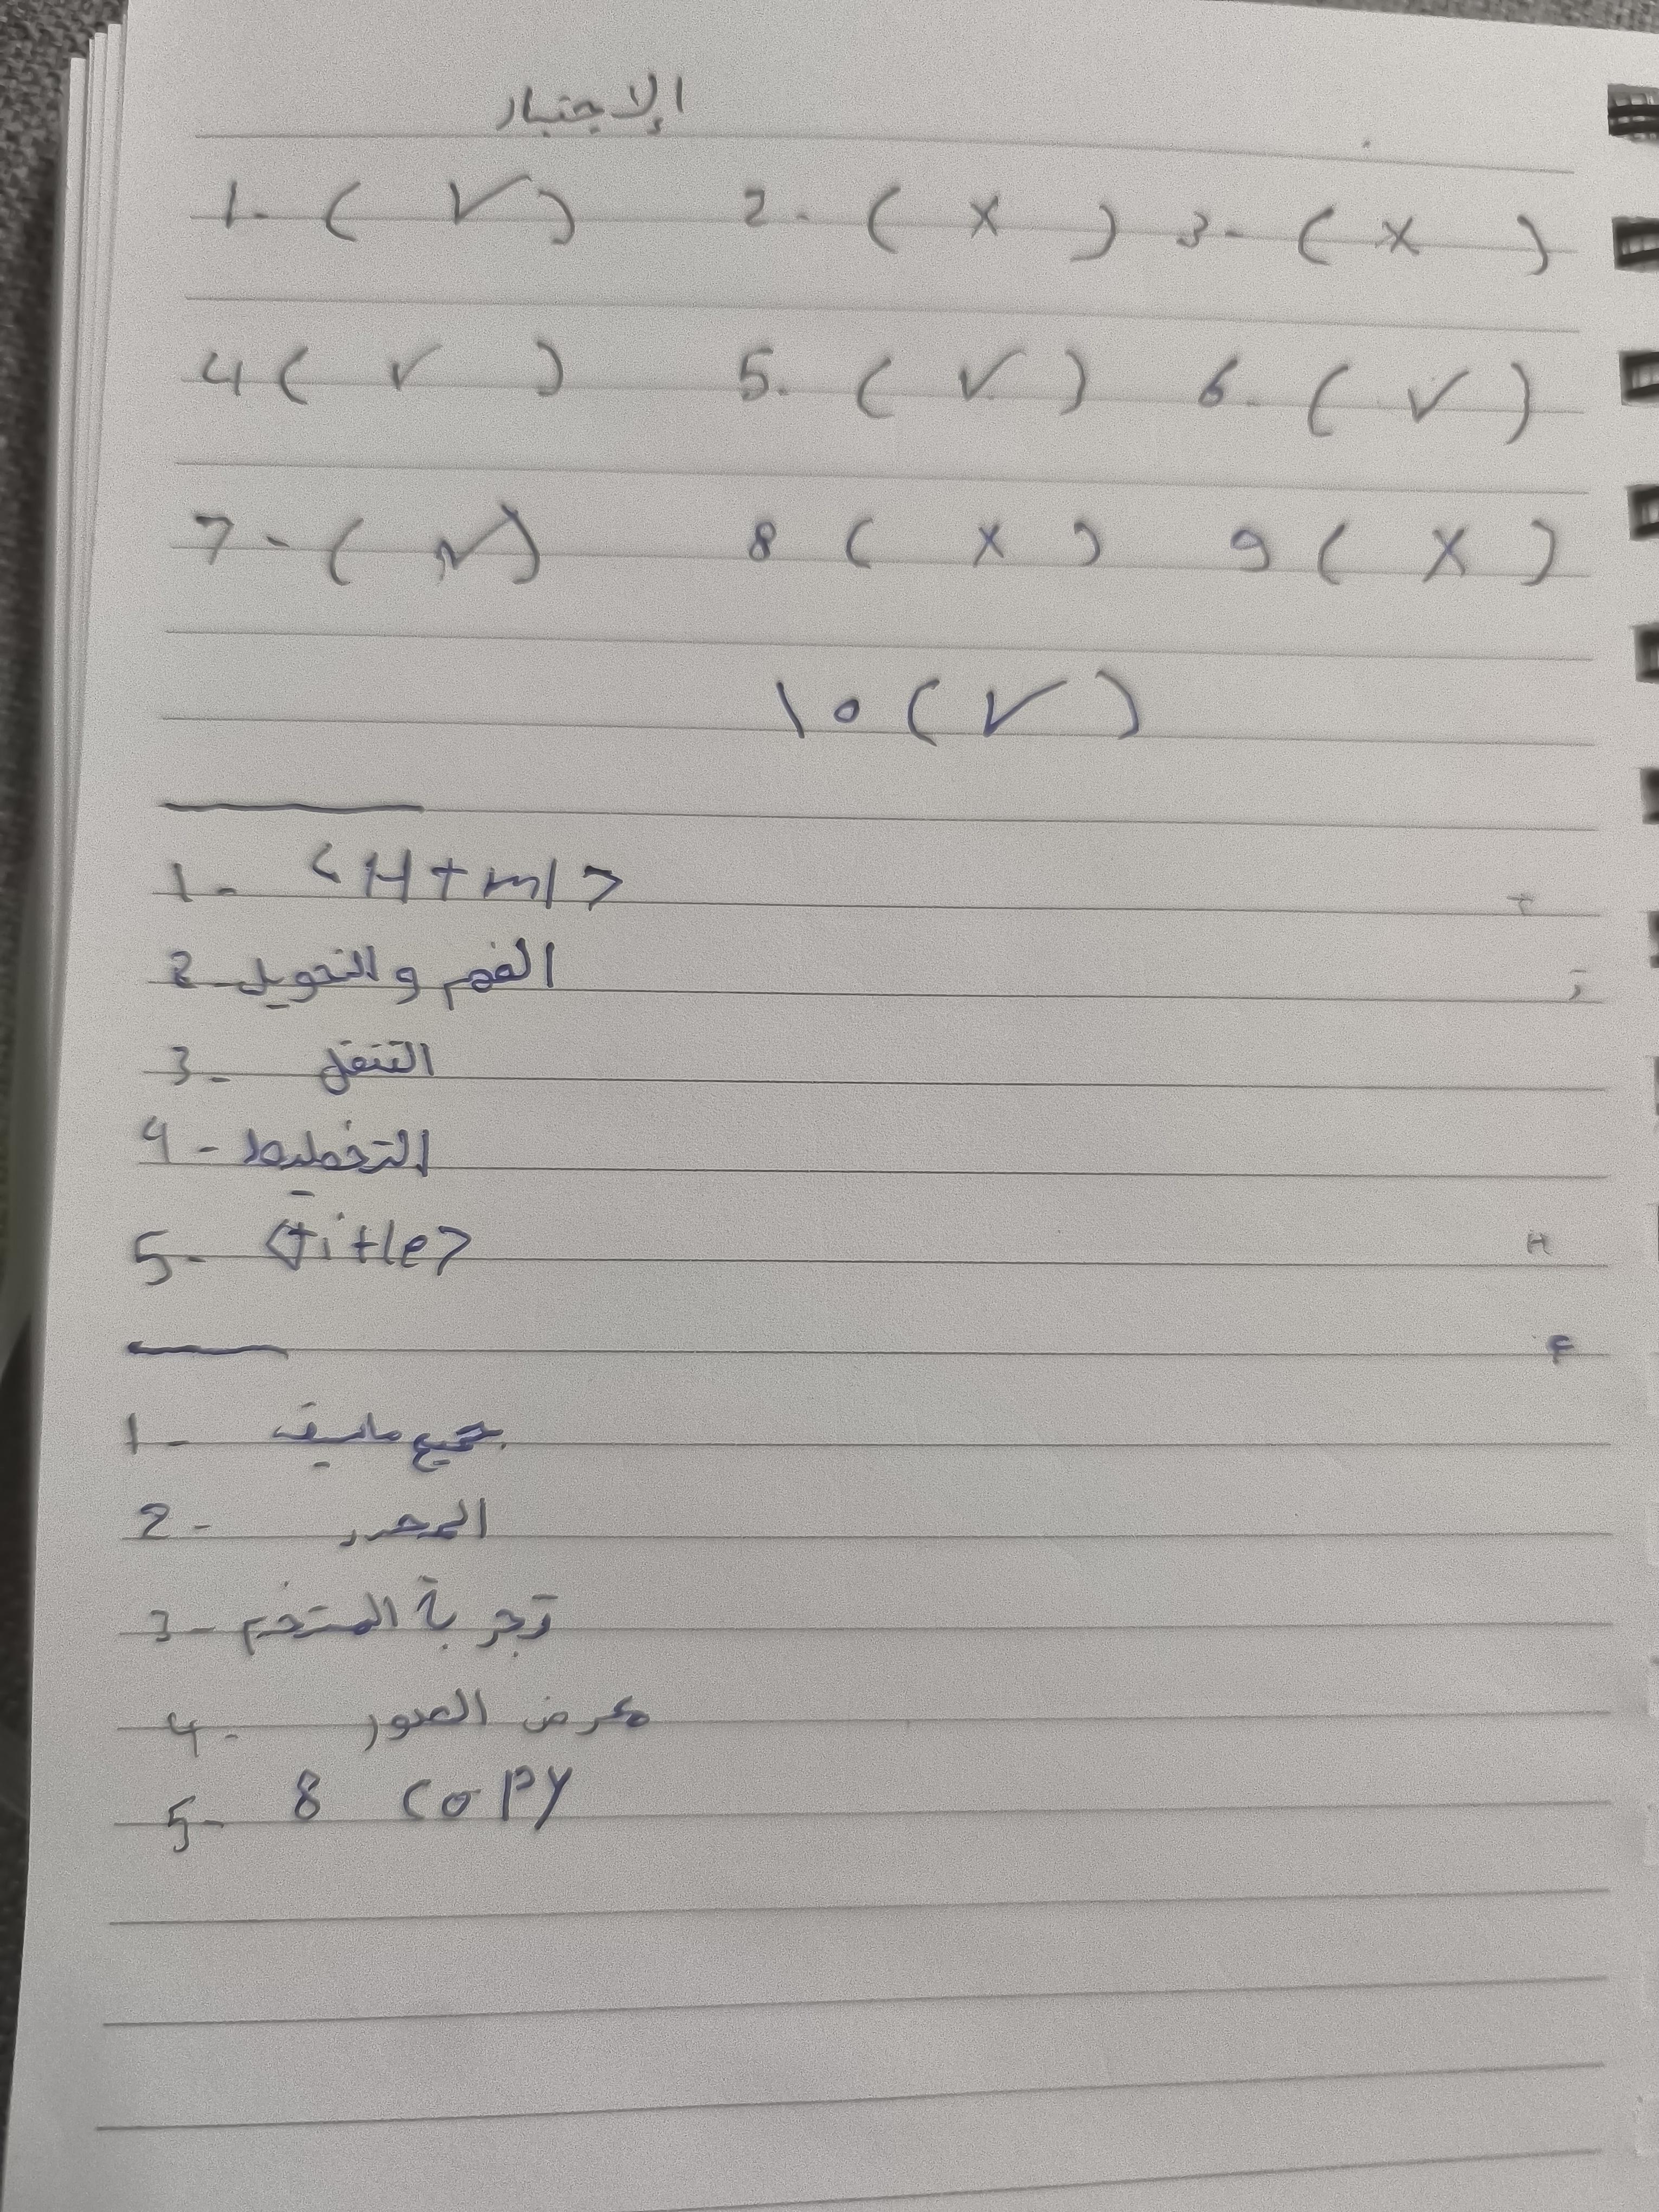 الإجتبار
1- ( √ ) 2- ( x ) 3- ( x )
4 ( √ ) 5. ( √ ) 6- ( √ )
7- ( √ ) 8 ( x ) 9 ( x )
10 ( √ )
1- <Html>
2- الفهم والتحويل
3- التنقل
4- التخطيط
5- <title>
1- جميع ماسبق
2- المحرر
3- تجربة المستخدم
4- معرض الصور
5- 8 copy